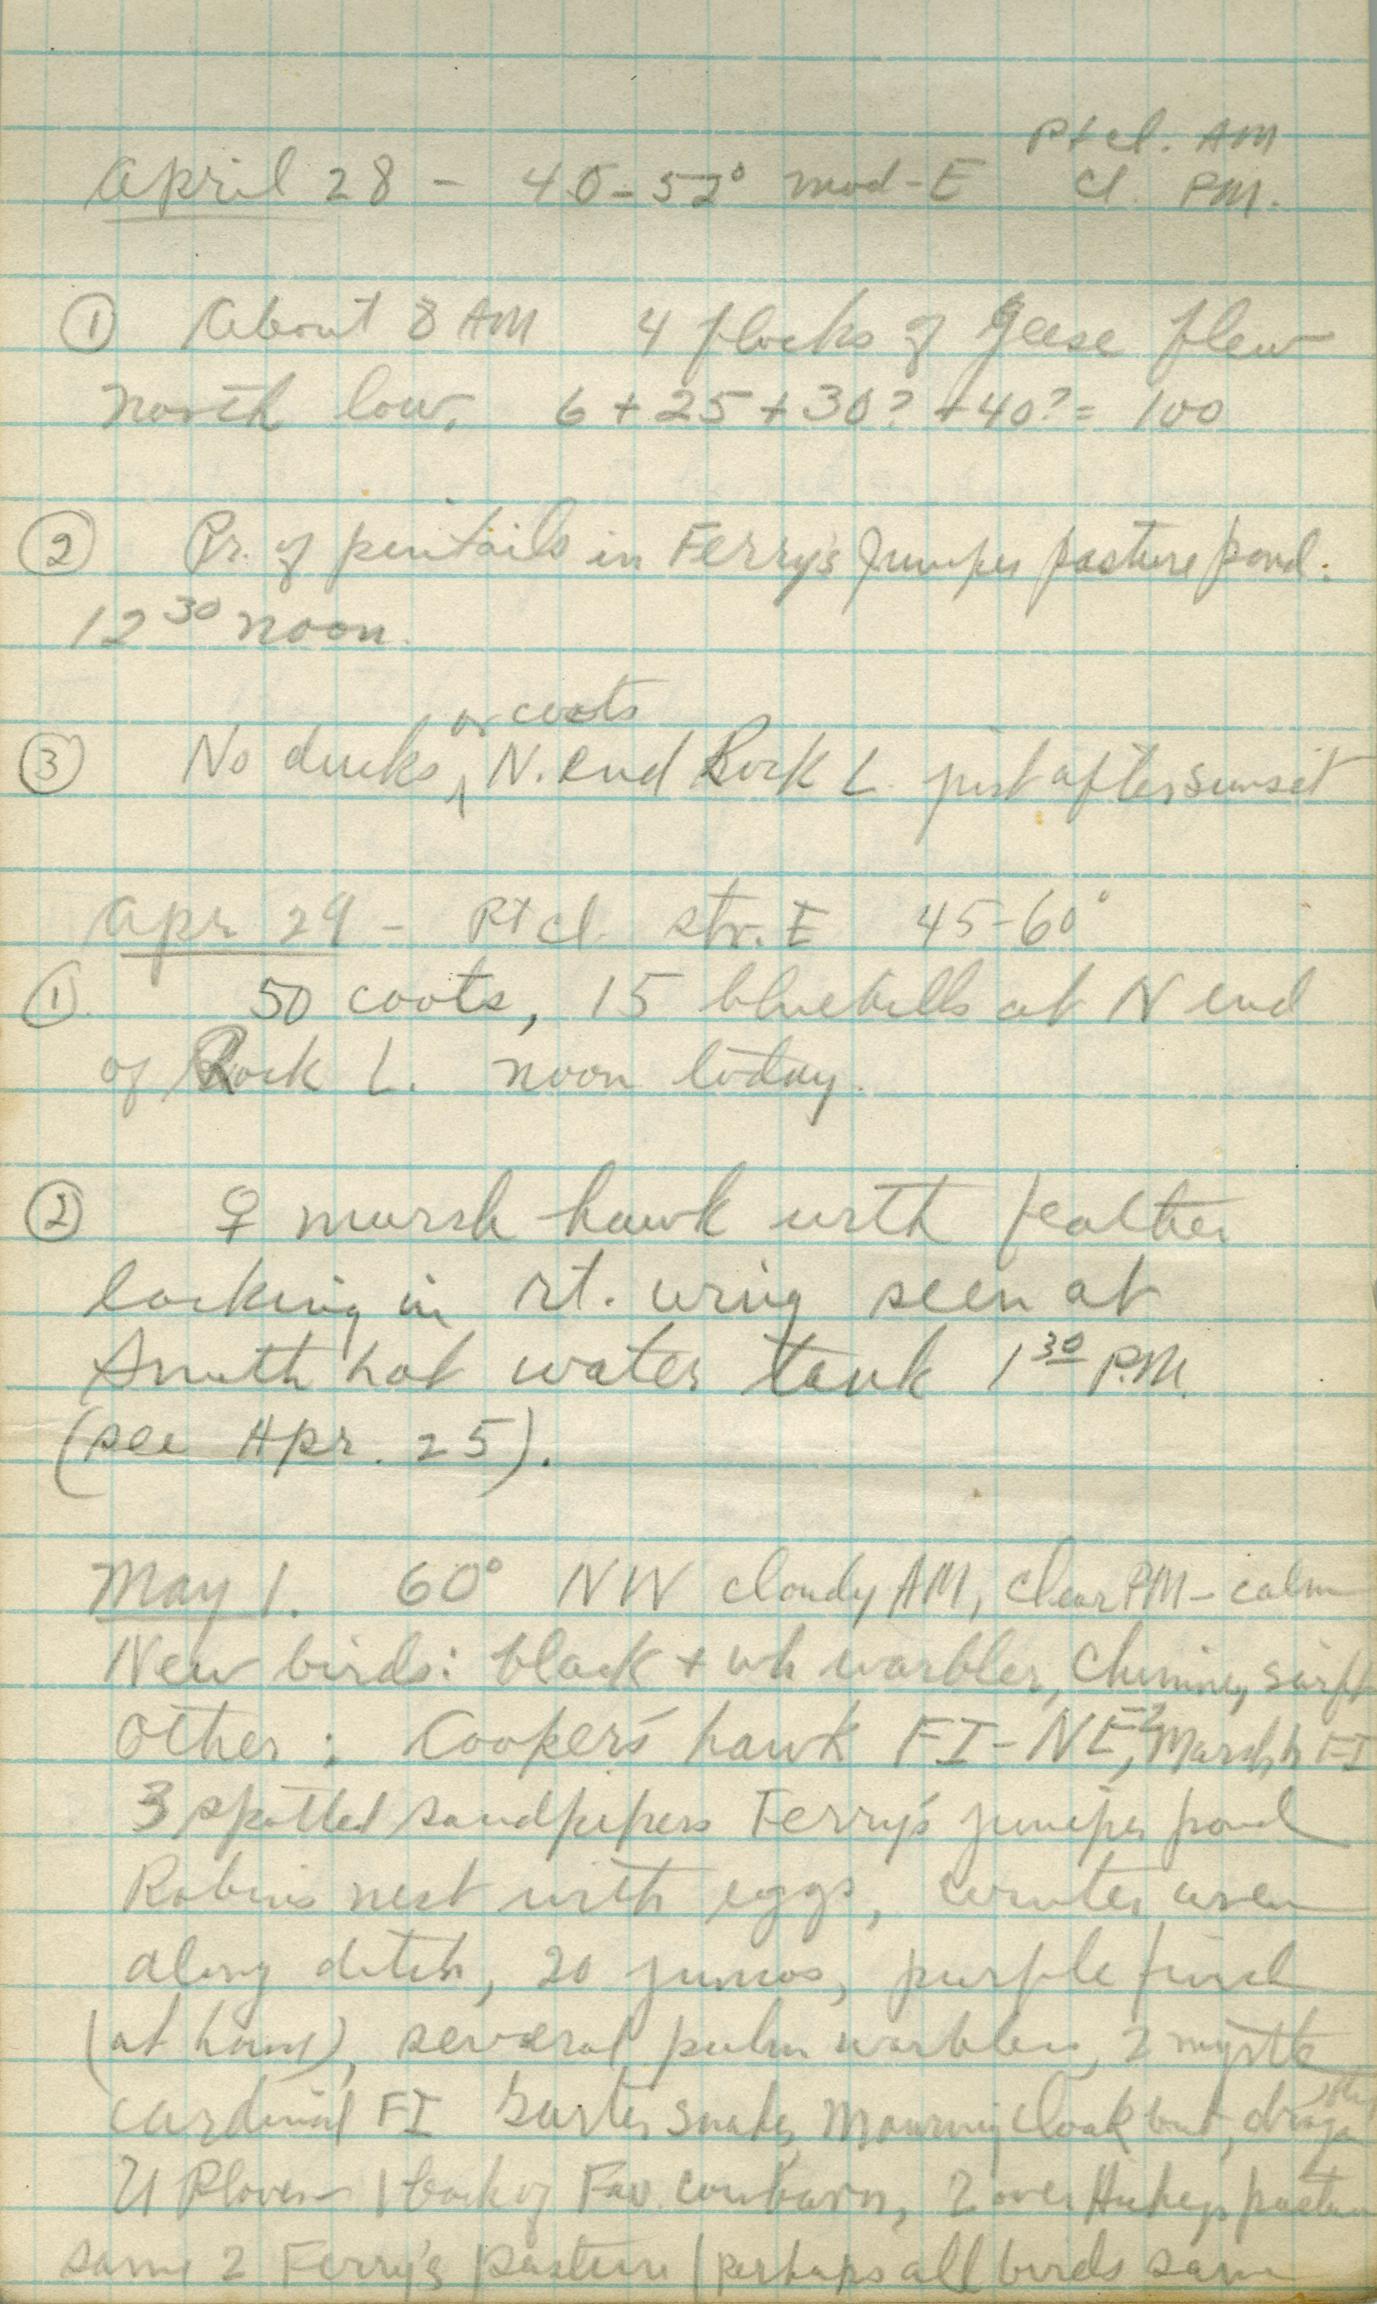 Ptcl. AM
April 28 - 40-52° mod-E Cl. PM.
① About 8 AM 4 flocks of geese flew
north low. 6 + 25 + 30? + 40? = 100
② Pr. of pintails in Ferry's Juniper pasture pond.
12 30 noon.
or coots
③ No ducks ∧ N. end Rock L. just after sunset
Apr 29 - Ptcl. str. E 45-60°
① 50 coots, 15 bluebills at N end
of Rock L. noon today.
② ♀ marsh hawk with feather
lacking in rt. wing seen at
Smith hot water tank 1 30 P.M.
(see Apr. 25).
May 1. 60° NW cloudy AM, clear PM - calm
New birds: black + wh warbler, Chimney swift
Other: Cooper's hawk FI-NE, Marsh h FI
3 spotted sandpipers Ferry's juniper pond
Robins nest with eggs, winter wren
along ditch, 20 juncos, purple finch
(at home), several palm warblers, 2 myrtle
cardinal FI Garter snake, Mourning cloak but,
U Plover - 1 back of Fav. cowbarn, 2 over pasture
same 2 Ferry's pasture (perhaps all birds same